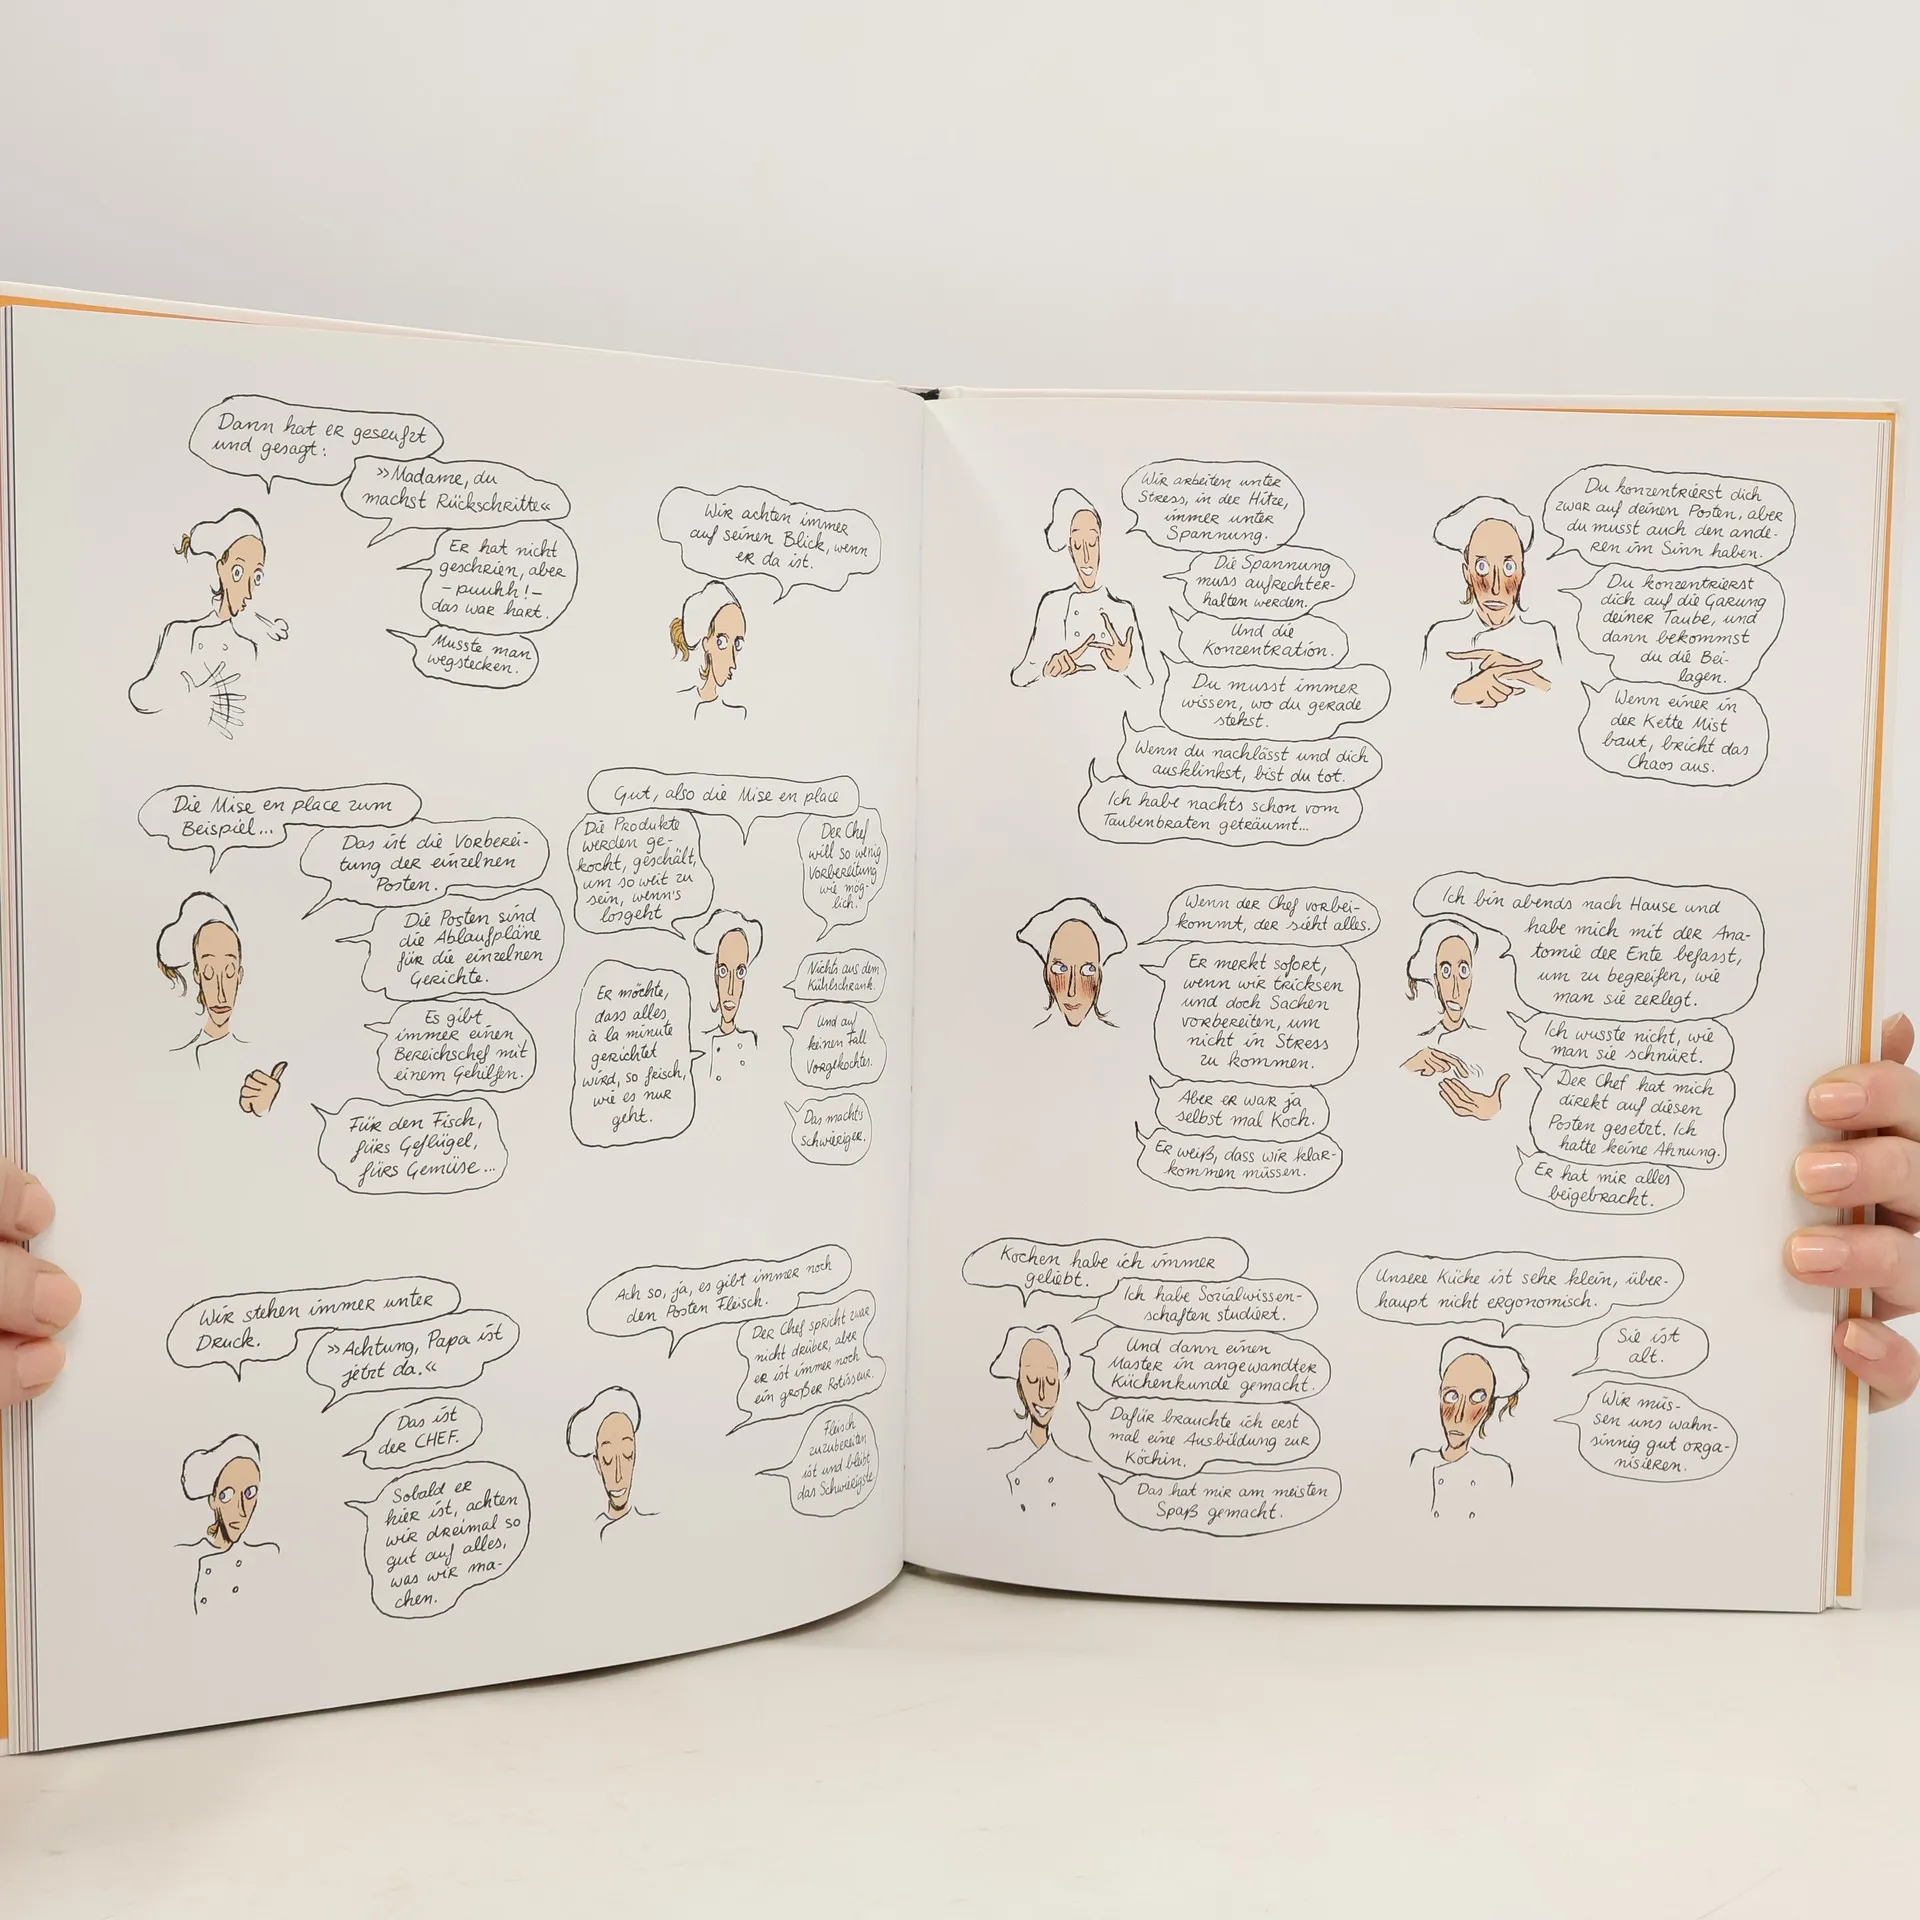 Dann hat er geseufzt
und gesagt:
»Madame, du
machst Rückschritte«
Er hat nicht
geschrien, aber
– puuhh! –
das war hart.
Musste man
wegstecken.
Wir achten immer
auf seinen Blick, wenn
er da ist.
Die Mise en place zum
Beispiel...
Das ist die Vorberei-
tung der einzelnen
Posten.
Die Posten sind
die Ablaufpläne
für die einzelnen
Gerichte.
Es gibt
immer einen
Bereichschef mit
einem Gehilfen.
Für den Fisch,
fürs Geflügel,
fürs Gemüse...
Gut, also die Mise en place
Die Produkte
werden ge-
kocht, geschält,
um so weit zu
sein, wenn's
losgeht
Er möchte,
dass alles,
à la minute
gerichtet
wird, so frisch,
wie es nur
geht.
Der Chef
will so wenig
Vorbereitung
wie mög-
lich.
Nichts aus dem
Kühlschrank.
Und auf
keinen Fall
Vorgekochtes.
Das macht's
schwieriger.
Wir stehen immer unter
Druck.
»Achtung, Papa ist
jetzt da.«
Das ist
der CHEF.
Sobald er
hier ist, achten
wir dreimal so
gut auf alles,
was wir ma-
chen.
Ach so, ja, es gibt immer noch
den Posten Fleisch.
Der Chef spricht zwar
nicht drüber, aber
er ist immer noch
ein großer Rotisseur.
Fleisch
zuzubereiten
ist und bleibt
das Schwierigste.
Wir arbeiten unter
Stress, in der Hitze,
immer unter
Spannung.
Die Spannung
muss aufrechter-
halten werden.
Und die
Konzentration.
Du musst immer
wissen, wo du gerade
stehst.
Wenn du nachlässt und dich
ausklinkst, bist du tot.
Ich habe nachts schon vom
Taubenbraten geträumt...
Du konzentrierst dich
zwar auf deinen Posten, aber
du musst auch den ande-
ren im Sinn haben.
Du konzentrierst
dich auf die Garung
deiner Taube, und
dann bekommst
du die Bei-
lagen.
Wenn einer in
der Kette Mist
baut, bricht das
Chaos aus.
Wenn der Chef vorbei-
kommt, der sieht alles.
Er merkt sofort,
wenn wir tricksen
und doch Sachen
vorbereiten, um
nicht in Stress
zu kommen.
Aber er war ja
selbst mal Koch.
Er weiß, dass wir klar-
kommen müssen.
Ich bin abends nach Hause und
habe mich mit der Ana-
tomie der Ente befasst,
um zu begreifen, wie
man sie zerlegt.
Ich wusste nicht, wie
man sie schnürt.
Der Chef hat mich
direkt auf diesen
Posten gesetzt. Ich
hatte keine Ahnung.
Er hat mir alles
beigebracht.
Kochen habe ich immer
geliebt.
Ich habe Sozialwissen-
schaften studiert.
Und dann einen
Master in angewandter
Küchenkunde gemacht.
Dafür brauchte ich erst
mal eine Ausbildung zur
Köchin.
Das hat mir am meisten
Spaß gemacht.
Unsere Küche ist sehr klein, über-
haupt nicht ergonomisch.
Sie ist
alt.
Wir müs-
sen uns wahn-
sinnig gut orga-
nisieren.